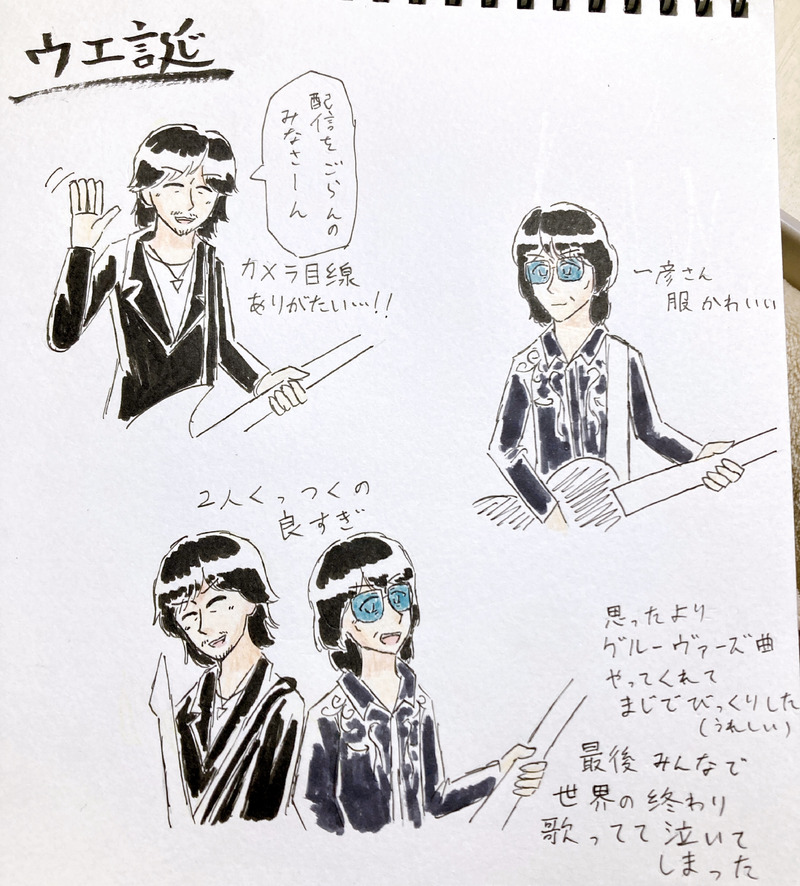 ウエ誕
配信をごらんの
みなさーん
カメラ目線
ありがたい…!!
一彦さん
服かわいい
2人くっつくの
良すぎ
思ったより
グルーヴァーズ曲
やってくれて
まじでびっくりした
(うれしい)
最後みんなで
世界の終わり
歌ってて泣いて
しまった